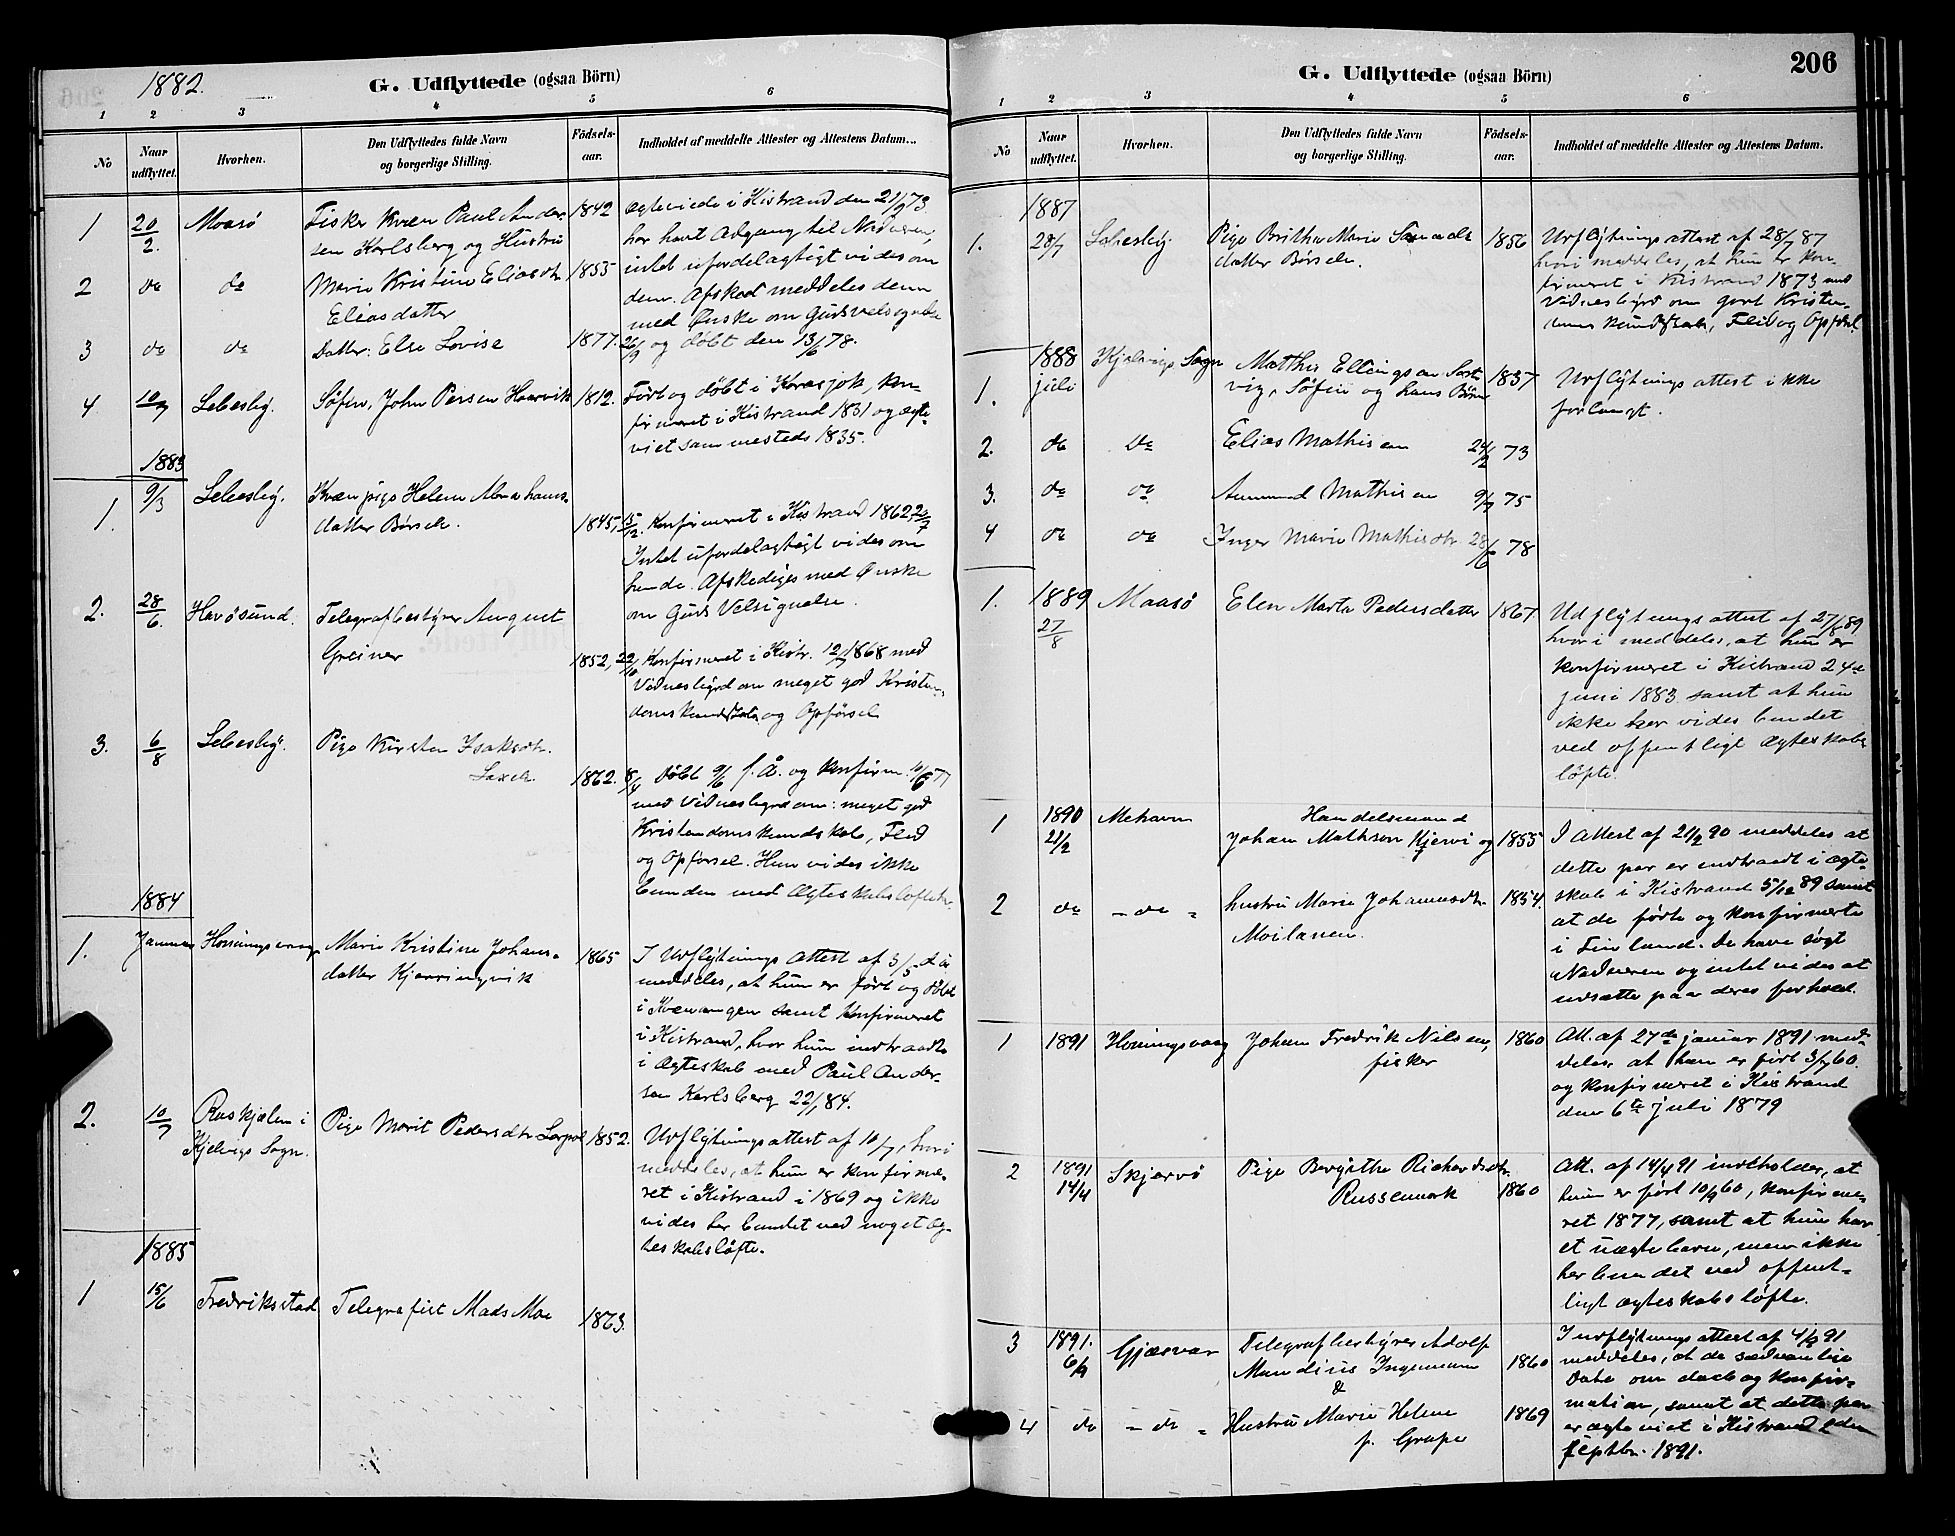 1882.
G. Udflyttede (ogsaa Börn)
1 2 3 4 5 6
No
Naar udflyttet.
Hvorhen.
Den Udflyttedes fulde Navn
og borgerlige Stilling.
Födsels-
aar.
Indholdet af meddelte Attester og Attestens Datum.
1 20/2. Maasö Fisker Kvæn Paul Ander- 1842 Ægteviede i Kistrand den 21/9 73
sen Karlsberg og Hustru har havt Adgang til Nadveren,
2 do do Marie Kristine Eliasdtr 1855 intet ufordelagtigt vides om
Eliasdatter dem. Afsked meddeles dem
med Ønske om Guds velsignelse
3 do do Datter: Else Lovise 1877. 26/9 og døbt den 13/6 78.
4 10/7 Lebesby. Søfin, John Persen 1812. Født og døbt i Karasjok, kon-
firmeret i Kistrand 1831 og ægte-
viet sammesteds 1835.
1883
1. 9/3 Lebesby. Kvænpige Helene Abrahams-
datter Børselv. 1845, 15/12. Konfirmeret i Kistrand 1862, 20/7
Intet ufordelagtigt vides om
hende. Afskediges med Ønske
om Guds Velsignelse.
2. 28/6. Havösund. Telegrafbestyrer August
Greiner 1852, 22/10 Konfirmeret i Kistr. 12/7 1868 med
Vidnesbyrd om meget god Kristen-
domskundskab og Opførsel
3. 6/8 Lebesby. Pige Kirsten Isaksdtr.
Laxelv. 1862. 8/4 Døbt 9/6 s. Å. og konfirm. 10/6 77
med Vidnesbyrd om: meget god
Kristendomskundskab, Flid
og Opførsel. Hun vides ikke
bunden med Ægteskabsløfter.
1884
1. Januar Honningsvaag Marie Kristine Johans- 1865 I Udflytnings Attest af 3/5 d. å
datter Kjerringvik meddeles, at hun er født og døbt
i Kvænangen samt Konfirmeret
i Kistrand, hvor hun indtraadte
i Ægteskab med Paul Ander-
sen Karlsberg 22/1 84.
2. 10/7 Pige Marit Pedersdtr 1852. Udflytningsattest af 10/7, hvori
Kjelvigs Sogn. meddeles, at hun er konfirme-
ret i Kistrand i 1869 og ikke
vides her bundet ved noget Æg-
teskabsløfte.
1885
1 15/6 Fredriksstad Telegrafist Mads Moe 1863.
206
G. Udflyttede (ogsaa Börn)
1 2 3 4 5 6
No
Naar
udflyttet.
Hvorhen.
Den Udflyttedes fulde Navn
og borgerlige Stilling.
Födsels-
aar.
Indholdet af meddelte Attester og Attestens Datum.
1887
1. 28/7 Lebesby. Pige Britha Marie 1856 Udflytningsattest af 28/7 87
datter Børselv. hvori meddeles, at hun er kon-
firmeret i Kistrand 1873 med
Vidnesbyrd om godt Kristen-
doms kundskab, Flid og Opførsel
1888 Kjelvigs Sogn Mathis Ellingsen
1. juli vig, Søfin og hans Børn 1837 Udflytnings attest ikke
forlangt.
2. do do Elias Mathisen 24/2 73
3. do do Ammund Mathisen 9/7 75
4 do do Inger Marie Mathisdtr 28/6 78
1. 1889 Maasö Elen Marta Pedersdatter 1867. Udflytningsattest af 27/8 89
27/8 hvori meddeles, at hun er
konfirmeret i Kistrand 24de
juni 1883 samt at hun
ikke her vides bundet
ved offentligt Ægteskabs
løfte.
1 1890 Mehavn Handelsmand
21/2 Johan Mathson Kjervi og 1855 I Attest af 21/2 90 meddeles at
dette par er indtraadt i ægte-
2 do - do - hustru Marie Johannesdtr 1854. skab i Kistrand 5/12 89 samt
Moilanen. at de fødte og konfirmerte
i Finland. De have søgt
Nadveren og intet vides at
udsætte paa deres forhold.
1 1891 Honningsvaag Johan Fredrik Nilsen, 1860 Att. af 27de januar 1891 med-
fisker deler at han er født 3/7 60.
og konfirmeret i Kistrand
den 6te juli 1879
2 1891 Skjervö Pige Bergithe Richardsdtr. Att. af 14/4 91 indeholder, at
14/4 Russemark 1860 hun er født 10/9 60, konfirme-
ret 1877, samt at hun har
et uægte barn, men ikke
her bundet ved offent-
ligt ægteskabsløfte.
3 1891. Gjæsvær Telegrafbestyrer Adolf I udflytnings attest af 4/9 91
6/9 Mandius Ingemann 1860 meddeles, at de sædvanlige
& Data om daab og konfir-
mation, samt at dette par
4 do - do - Hustru Marie Helene 1869 er ægteviet i Kistrand 2den
f. Grape septbr. 1891.